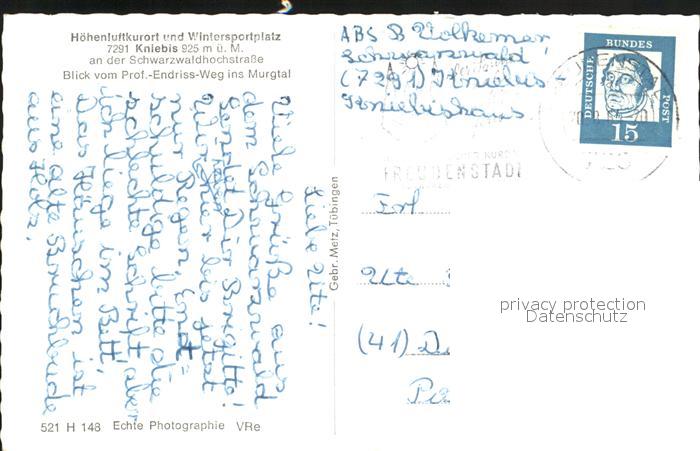 Höhenluftkurort und Wintersportplatz
7291 Kniebis 925 m ü. M.
an der Schwarzwaldhochstraße
Blick vom Prof.-Endriss-Weg ins Murgtal
Liebe Ute!
Viele Grüße aus
dem Schwarzwald
sendet Dir Brigitte!
Nur hier bis jetzt
nur Regen. Ent=
schuldige bitte die
schlechte Schrift aber
ich liege im Bett!
Das Häuschen ist
eine alte Bruchbude
aus Holz!
521 H 148 Echte Photographie VRe
Gebr. Metz, Tübingen
ABS B Volkemer
Schwarzwald
(7291) Kniebis -
Kniebishaus
FREUDENSTADT
DEUTSCHE BUNDES POST
15
Frl
Ute
(41) D
privacy protection
Datenschutz